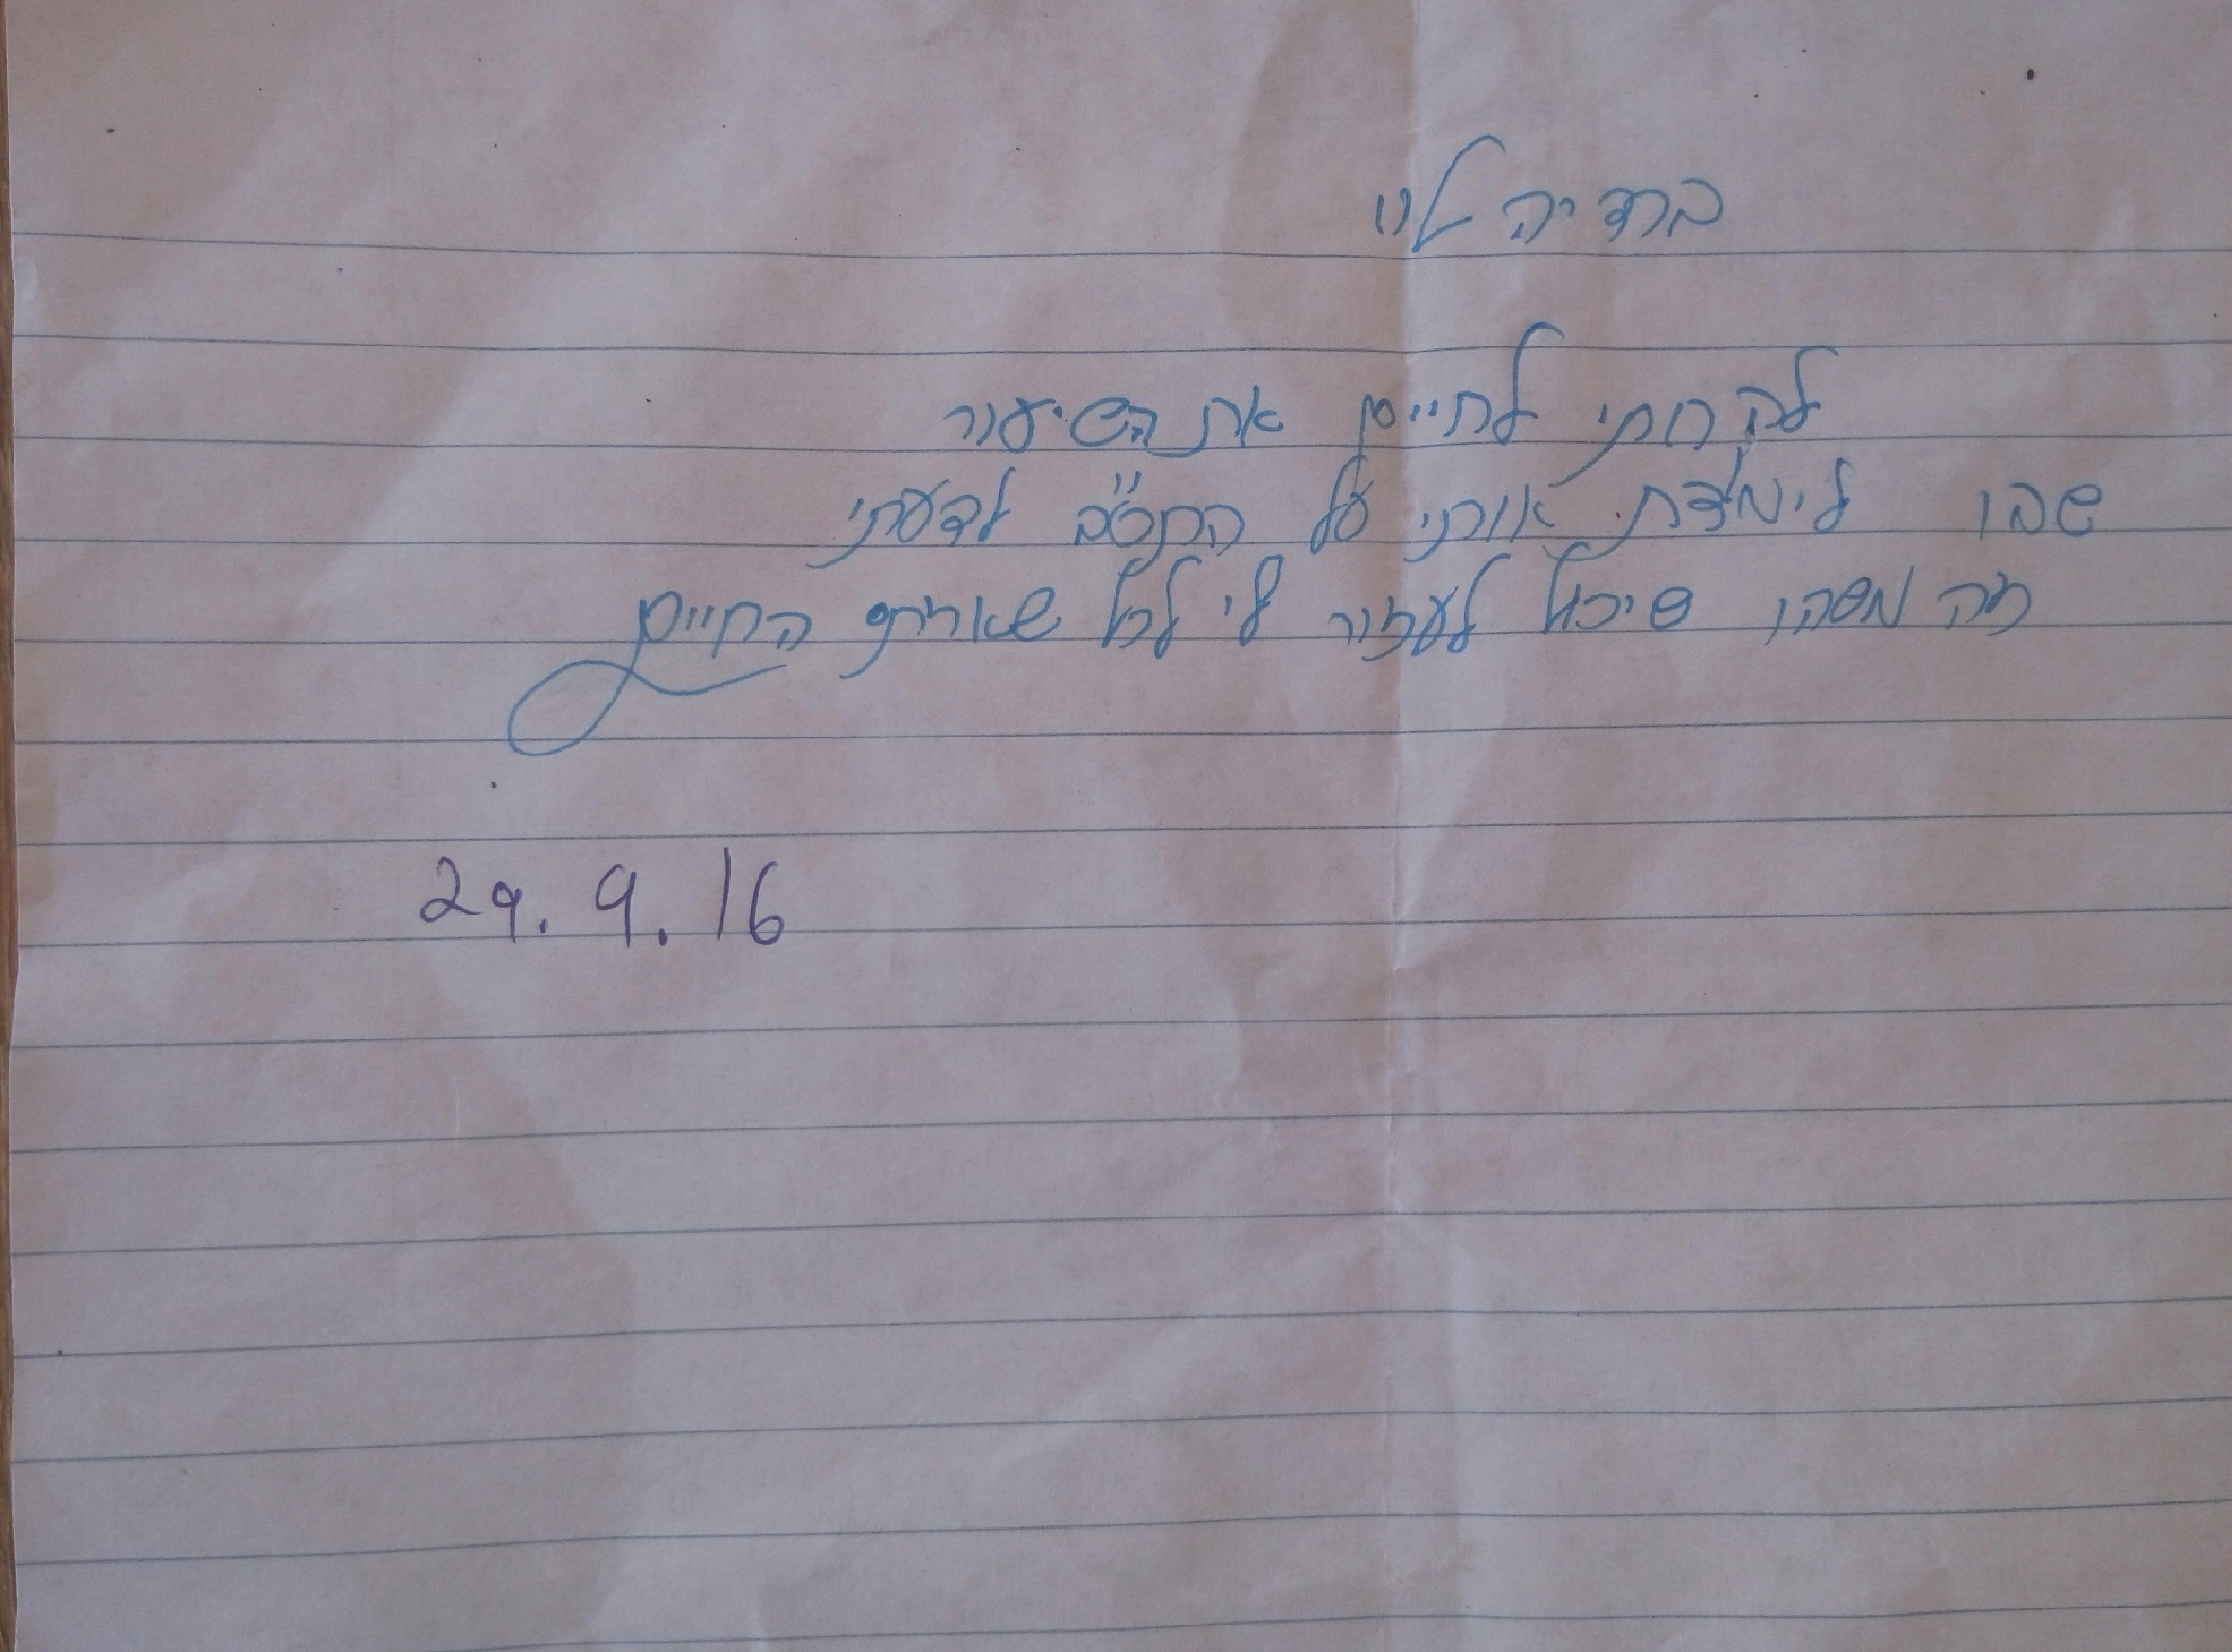 ברדיה לוי
לקחתי לחיים את השיעור
שבו לימדת אותי על התט"ב לדעתי
זה משהו שיכול לעזור לי לכל שארית החיים
29.9.16